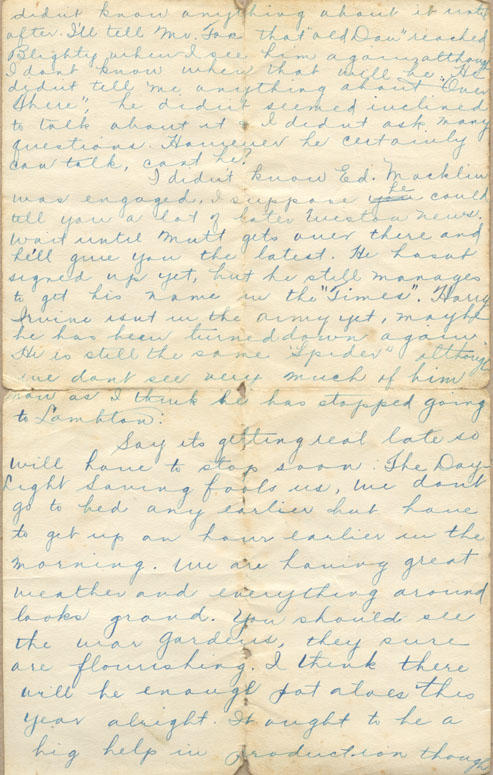 didn't know anything about it until
after. I'll tell "Mr. Fox" "that old Dau" reached
Blighty when I see him again although
I dont know when that will be. He
didn't tell me anything about "Over
There", he didn't seemed inclined
to talk about it & I didn't ask many
questions. However he certainly
can talk, cant he?
I didn't know Ed. Macklin
was engaged, I suppose he could
tell you a lot of later Weston news.
Wait until Mutt gets over there and
he'll give you the latest. He hasnt
signed up yet, but he still manages
to get his name in the "Times". Harry
Irvine isnt in the army yet, maybe
he has been turned down again
He is still the same "Spider" although
we dont see very much of him
now as I think he has stopped going
to Lambton.
Say its getting real late so
will have to stop soon. The Day-
Light Saving fools us, we dont
go to bed any earlier but have
to get up an hour earlier in the
morning. We are having great
weather and everything around
looks grand. You should see
the war gardens, they sure
are flourishing. I think there
will be enough potatoes this
year alright. It ought to be a
big help in production though